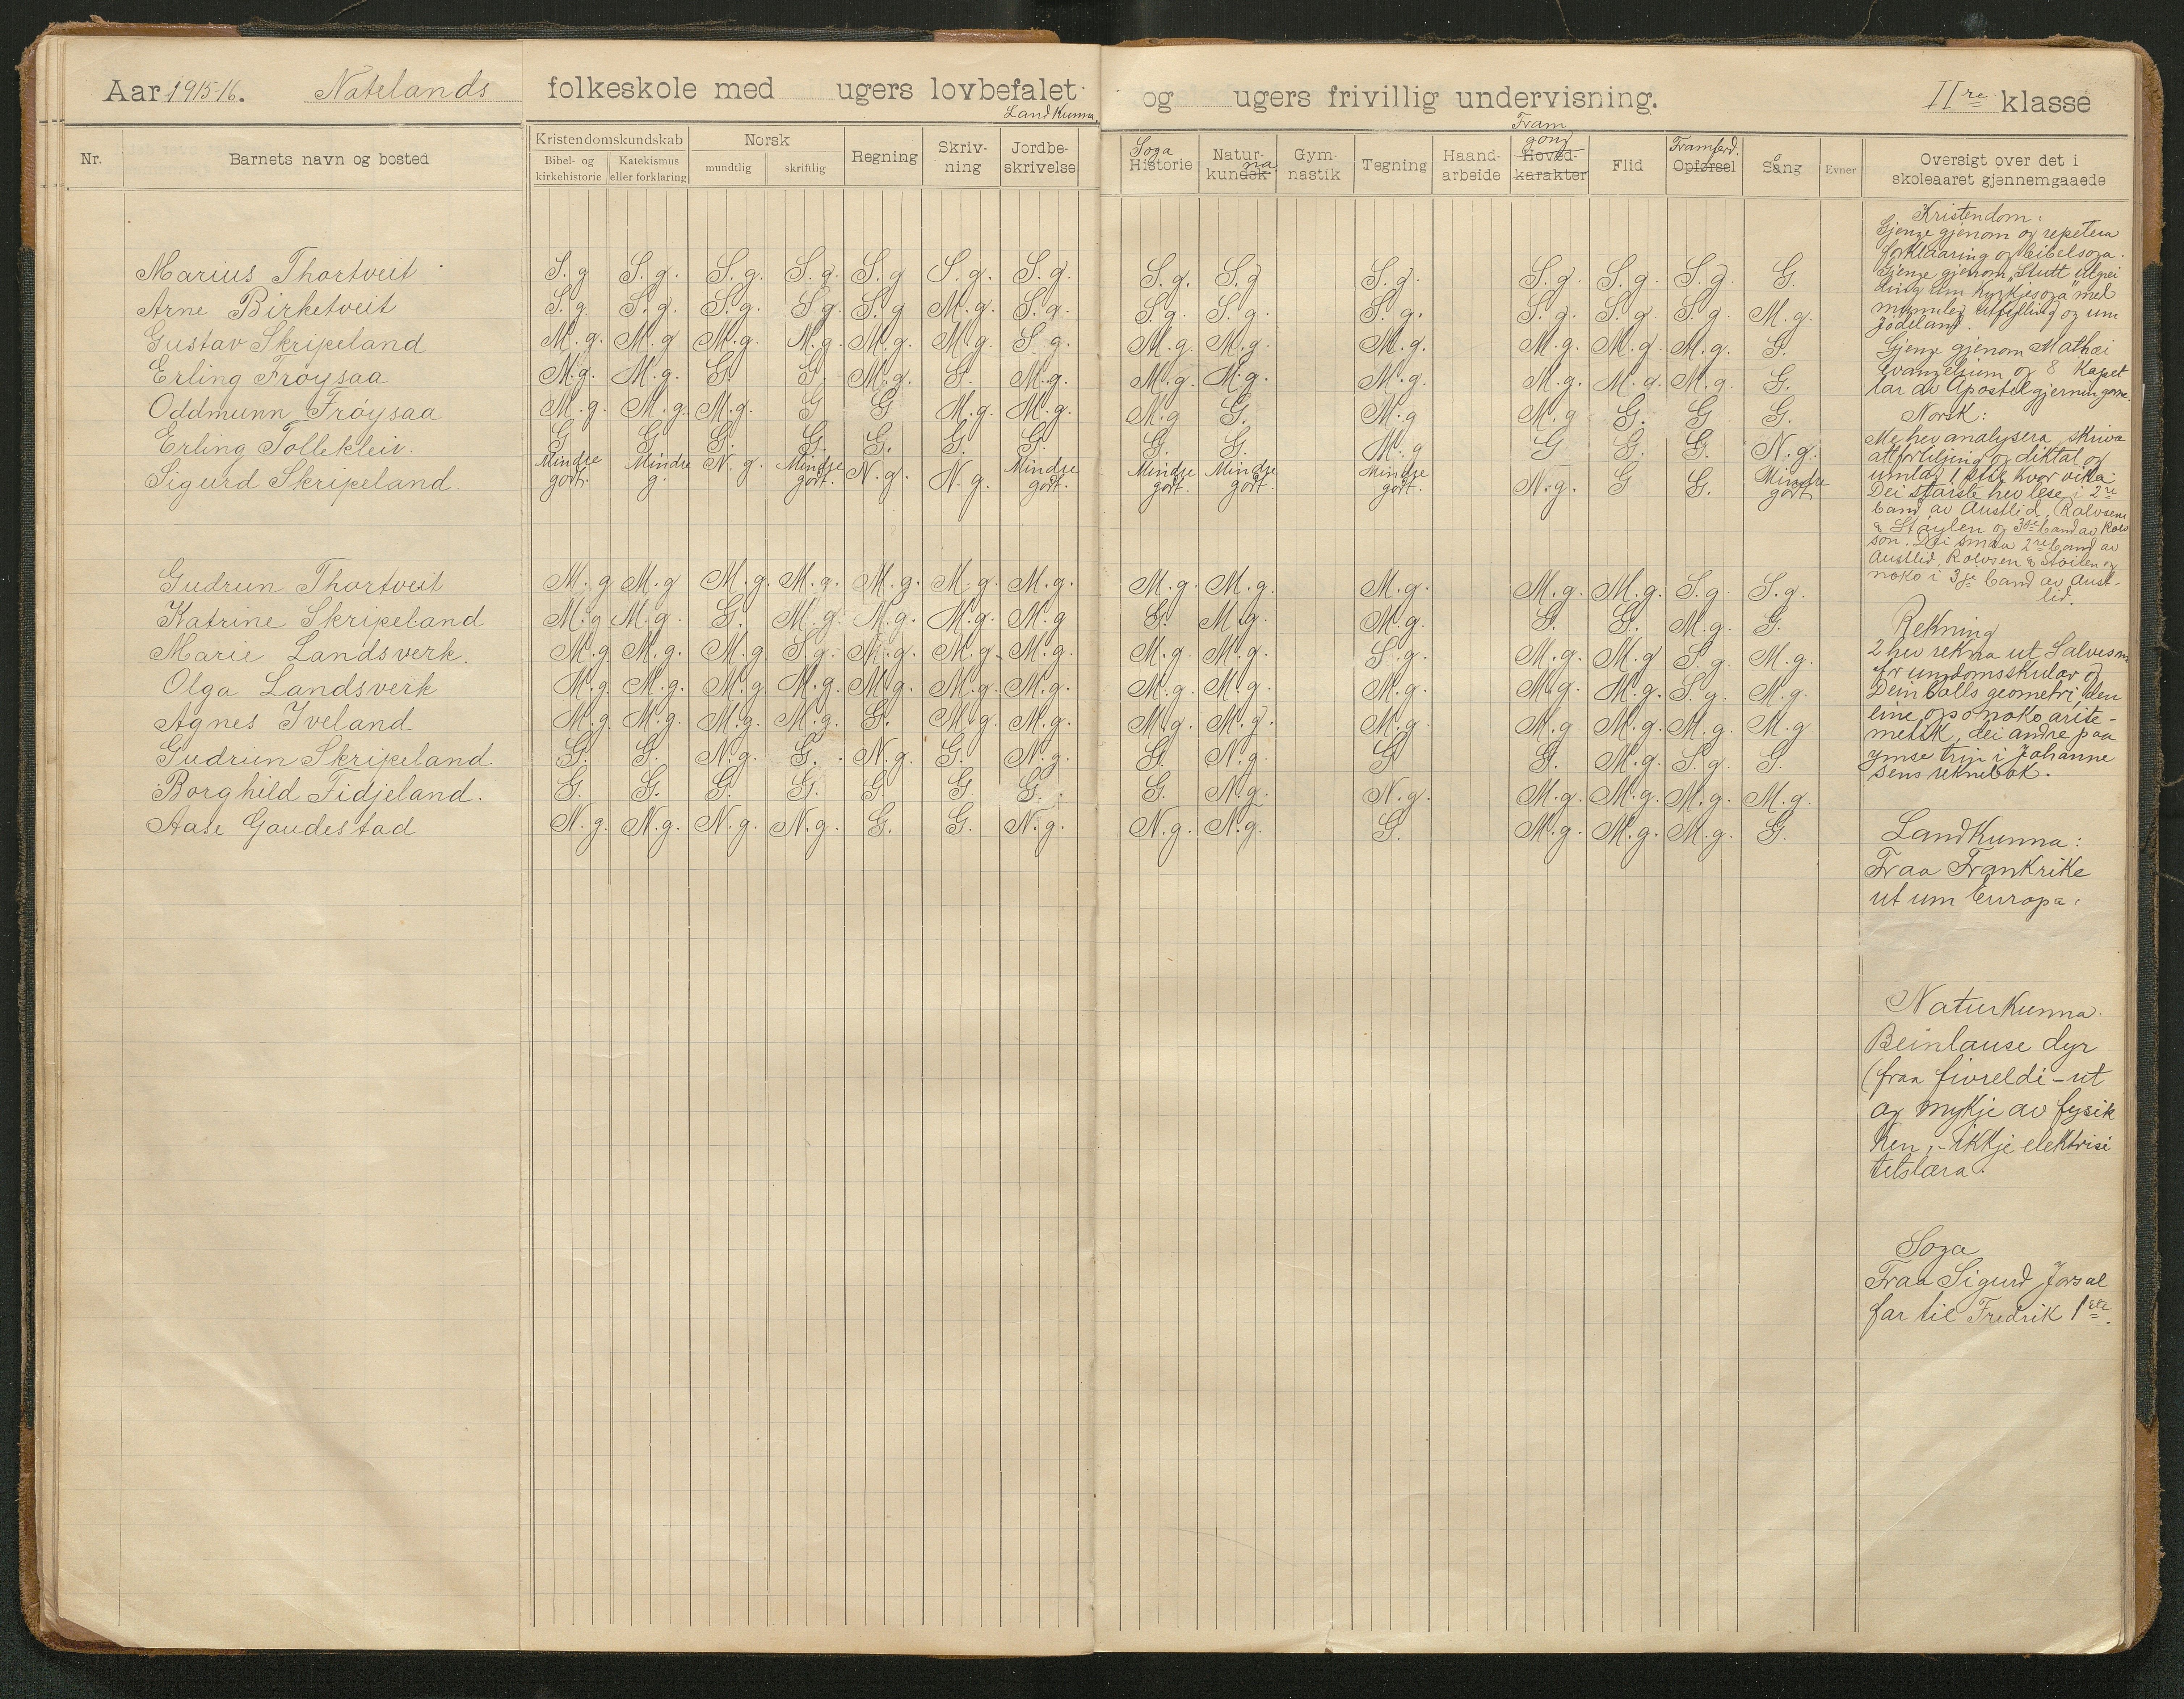 Aar 1915-16. Natelands folkeskole med ugers lovbefalet og ugers frivillig undervisning. II re klasse
Landkunna. Fram
Kristendomskundskab Norsk Soga gong Framferd.
Nr. Barnets navn og bosted Bibel- og kirkehistorie Katekismus eller forklaring mundtlig skriftlig Regning Skriv-ning Jordbe-skrivelse Historie Natur-kundsk na Gym-nastik Tegning Haand-arbeide Hoved-karakter Flid Opførsel Sång Evner Oversigt over det i skoleaaret gjennemgaaede
Marius Thortveit S.g S.g. S.g. S.g. S.g S.g. S.g. S.g. S.g S.g. S.g. S.g. S.g. G.
Arne Birketveit S.g S.g. S.g. S.g. S.g M.g. S.g. S.g. S.g. S.g. S.g. S.g. S.g. M.g.
Gustav Skripeland M.g. M.g M.g. M.g. M.g. M.g. S.g. M.g. M.g. M.g. M.g. M.g. M.g. G.
Erling Frøysaa M.g. M.g. G. G. M.g. G. M.g. M.g. M.g. M.g. M.g. M.g. M.g. G.
Oddmunn Frøysaa M.g. M.g. M.g. G G M.g. M.g. M.g G. M.g M.g G. G G.
Erling Tollekleiv. G G G. G. G. G. G. G. G. M.g G G. G. N.g.
Sigurd Skripeland. Mindre godt. Mindre g. N.g. Mindre godt. N.g. N.g. Mindre godt. Mindre godt. Mindre godt. Mindre godt. N.g. G G. Mindre godt
Gudrun Thortveit M.g M.g M.g. M.g. M.g. M.g. M.g. M.g. M.g. M.g. M.g. M.g. S.g. S.g.
Katrine Skripeland M.g M.g. G. M.g. M.g. M.g. M.g G. M.g. M.g. G. G. M.g. G.
Marie Landsverk. M.g M.g. M.g. S.g. M.g. M.g. M.g. M.g. M.g. S.g. M.g. M.g S.g. M.g.
Olga Landsverk M.g M.g. M.g. M.g. M.g. M.g. M.g. M.g. M.g. M.g. M.g. M.g. S.g. M.g.
Agnes Iveland M.g. M.g. M.g. M.g. G. M.g. M.g. M.g. M.g. M.g. M.g M.g. M.g. M.g
Gudrun Skripeland G. G. N.g. G. N.g. G. N.g. G. N.g. G G. M.g. S.g. G.
Borghild Fidjeland. G. G. G. G. G. G G. G. N.g. N.g. M.g. M.g. M.g. M.g.
Aase Gaudestad N.g. N.g. N.g. N.g. G. G. N.g. N.g. N.g. G. M.g. M.g. M.g. G.
Kristendom:
Gjenge gjenom og repetera
forklaaring og bibelsoga.
Gjenge gjenom "Stutt utgrei
ding um kyrkjesoga" med
munnleg utfylling og um
Jødeland.
Gjenge gjenom Mathæi
Evangelium og 8 kapet
lar av Apostelgjerningane.
Norsk:
Me hev analysera, skriva
atforteljing og diktat og
umlag 1 stil kvar vika.
Dei største hev lese i 2re
band av Austlid, Rolvsen
& Støylen og 3dje band av Rolv
son. Dei smaa 2re band av
Austlid, Rolvsen & Støilen og
noko i 3je band av Aust-
lid.
Rekning
2 hev rekna ut Salvesens
for ungdomsskular og
Deinbolls geometri, den
eine ogso noko arite-
metik, dei andre paa
ymse trin i Johanne
sens reknebok.
Landkunna:
Fraa Frankrike
ut um Europa.
Naturkunna.
Beinlause dyr
(fraa fivreldi - ut
og mykje av fysik
ken, - ikkje elektrisi
tetslæra.
Soga
Fraa Sigurd Jorsal
far til Fredrik 1ste.